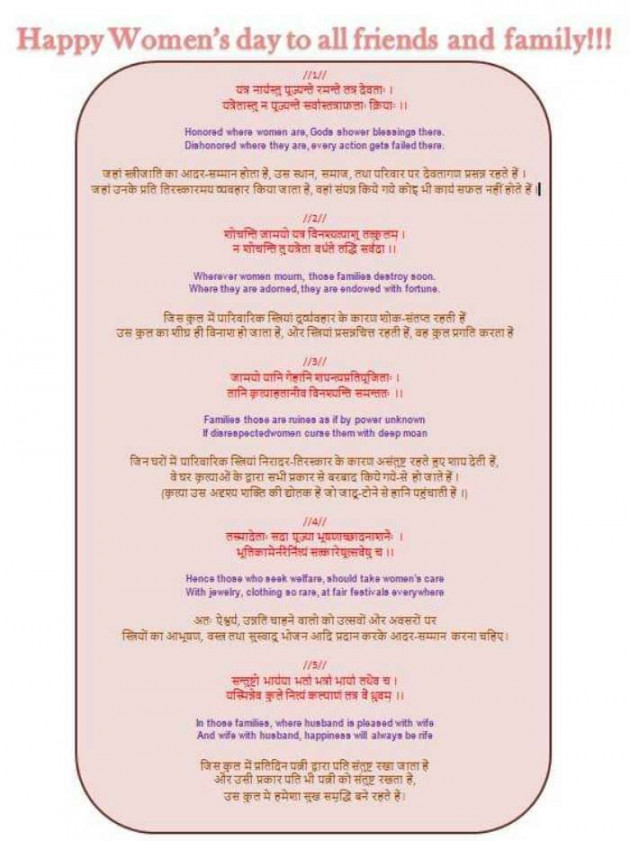 Happy Women's day to all friends and family!!!
//1//
यत्र नार्यस्तु पूज्यन्ते रमन्ते तत्र देवताः ।
यत्रैतास्तु न पूज्यन्ते सर्वास्तत्राफलाः क्रियाः ।।
Honored where women are, Gods shower blessings there.
Dishonored where they are, every action gets failed there.
जहां स्त्रीजाति का आदर-सम्मान होता है, उस स्थान, समाज, तथा परिवार पर देवतागण प्रसन्न रहते हैं ।
जहां उनके प्रति तिरस्कारमय व्यवहार किया जाता है, वहां संपन्न किये गये कोइ भी कार्य सफल नहीं होते हैं।
//2//
शोचन्ति जामयो यत्र विनश्यत्याशु तत्कुलम् ।
न शोचन्ति तु यत्रैता वर्धते तद्धि सर्वदा ।।
Wherever women mourn, those families destroy soon.
Where they are adorned, they are endowed with fortune.
जिस कुल में पारिवारिक स्त्रियां दुर्व्यवहार के कारण शोक-संतप्त रहती हैं
उस कुल का शीघ्र ही विनाश हो जाता है, और स्त्रियां प्रसन्नचित्त रहती हैं, वह कुल प्रगति करता है
//3//
जामयो यानि गेहानि शपन्त्यप्रतिपूजिताः ।
तानि कृत्याहतानीव विनश्यन्ति समन्ततः ।।
Families those are ruines as if by power unknown
If disrespectedwomen curse them with deep moan
जिन घरों में पारिवारिक स्त्रियां निरादर-तिरस्कार के कारण असंतुष्ट रहते हुए शाप देती हैं,
वे घर कृत्याओं के द्वारा सभी प्रकार से बरबाद किये गये-से हो जाते हैं ।
(कृत्या उस अदृश्य शक्ति की द्योतक है जो जादू-टोने से हानि पहुंचाती हैं ।)
//4//
तस्मादेताः सदा पूज्या भूषणाच्छादनाशनैः ।
भूतिकामैर्नरैर्नित्यं सत्कारेषूत्सवेषु च ।।
Hence those who seek welfare, should take women's care
With jewelry, clothing so rare, at fair festivals everywhere
अतः ऐश्वर्य, उन्नति चाहने वालो को उत्सवों और अवसरों पर
स्त्रियों का आभूषण, वस्त्र तथा सुस्वादु भोजन आदि प्रदान करके आदर-सम्मान करना चहिए।
//5//
सन्तुष्टो भार्यया भर्ता भर्त्रा भार्या तथैव च ।
यस्मिन्नेव कुले नित्यं कल्याणं तत्र वै ध्रुवम् ।।
In those families, where husband is pleased with wife
And wife with husband, happiness will always be rife
जिस कुल में प्रतिदिन पत्नी द्वारा पति संतुष्ट रखा जाता है
और उसी प्रकार पति भी पत्नी को संतुष्ट रखता है,
उस कुल मे हमेशा सुख समृद्धि बने रहते हैं।